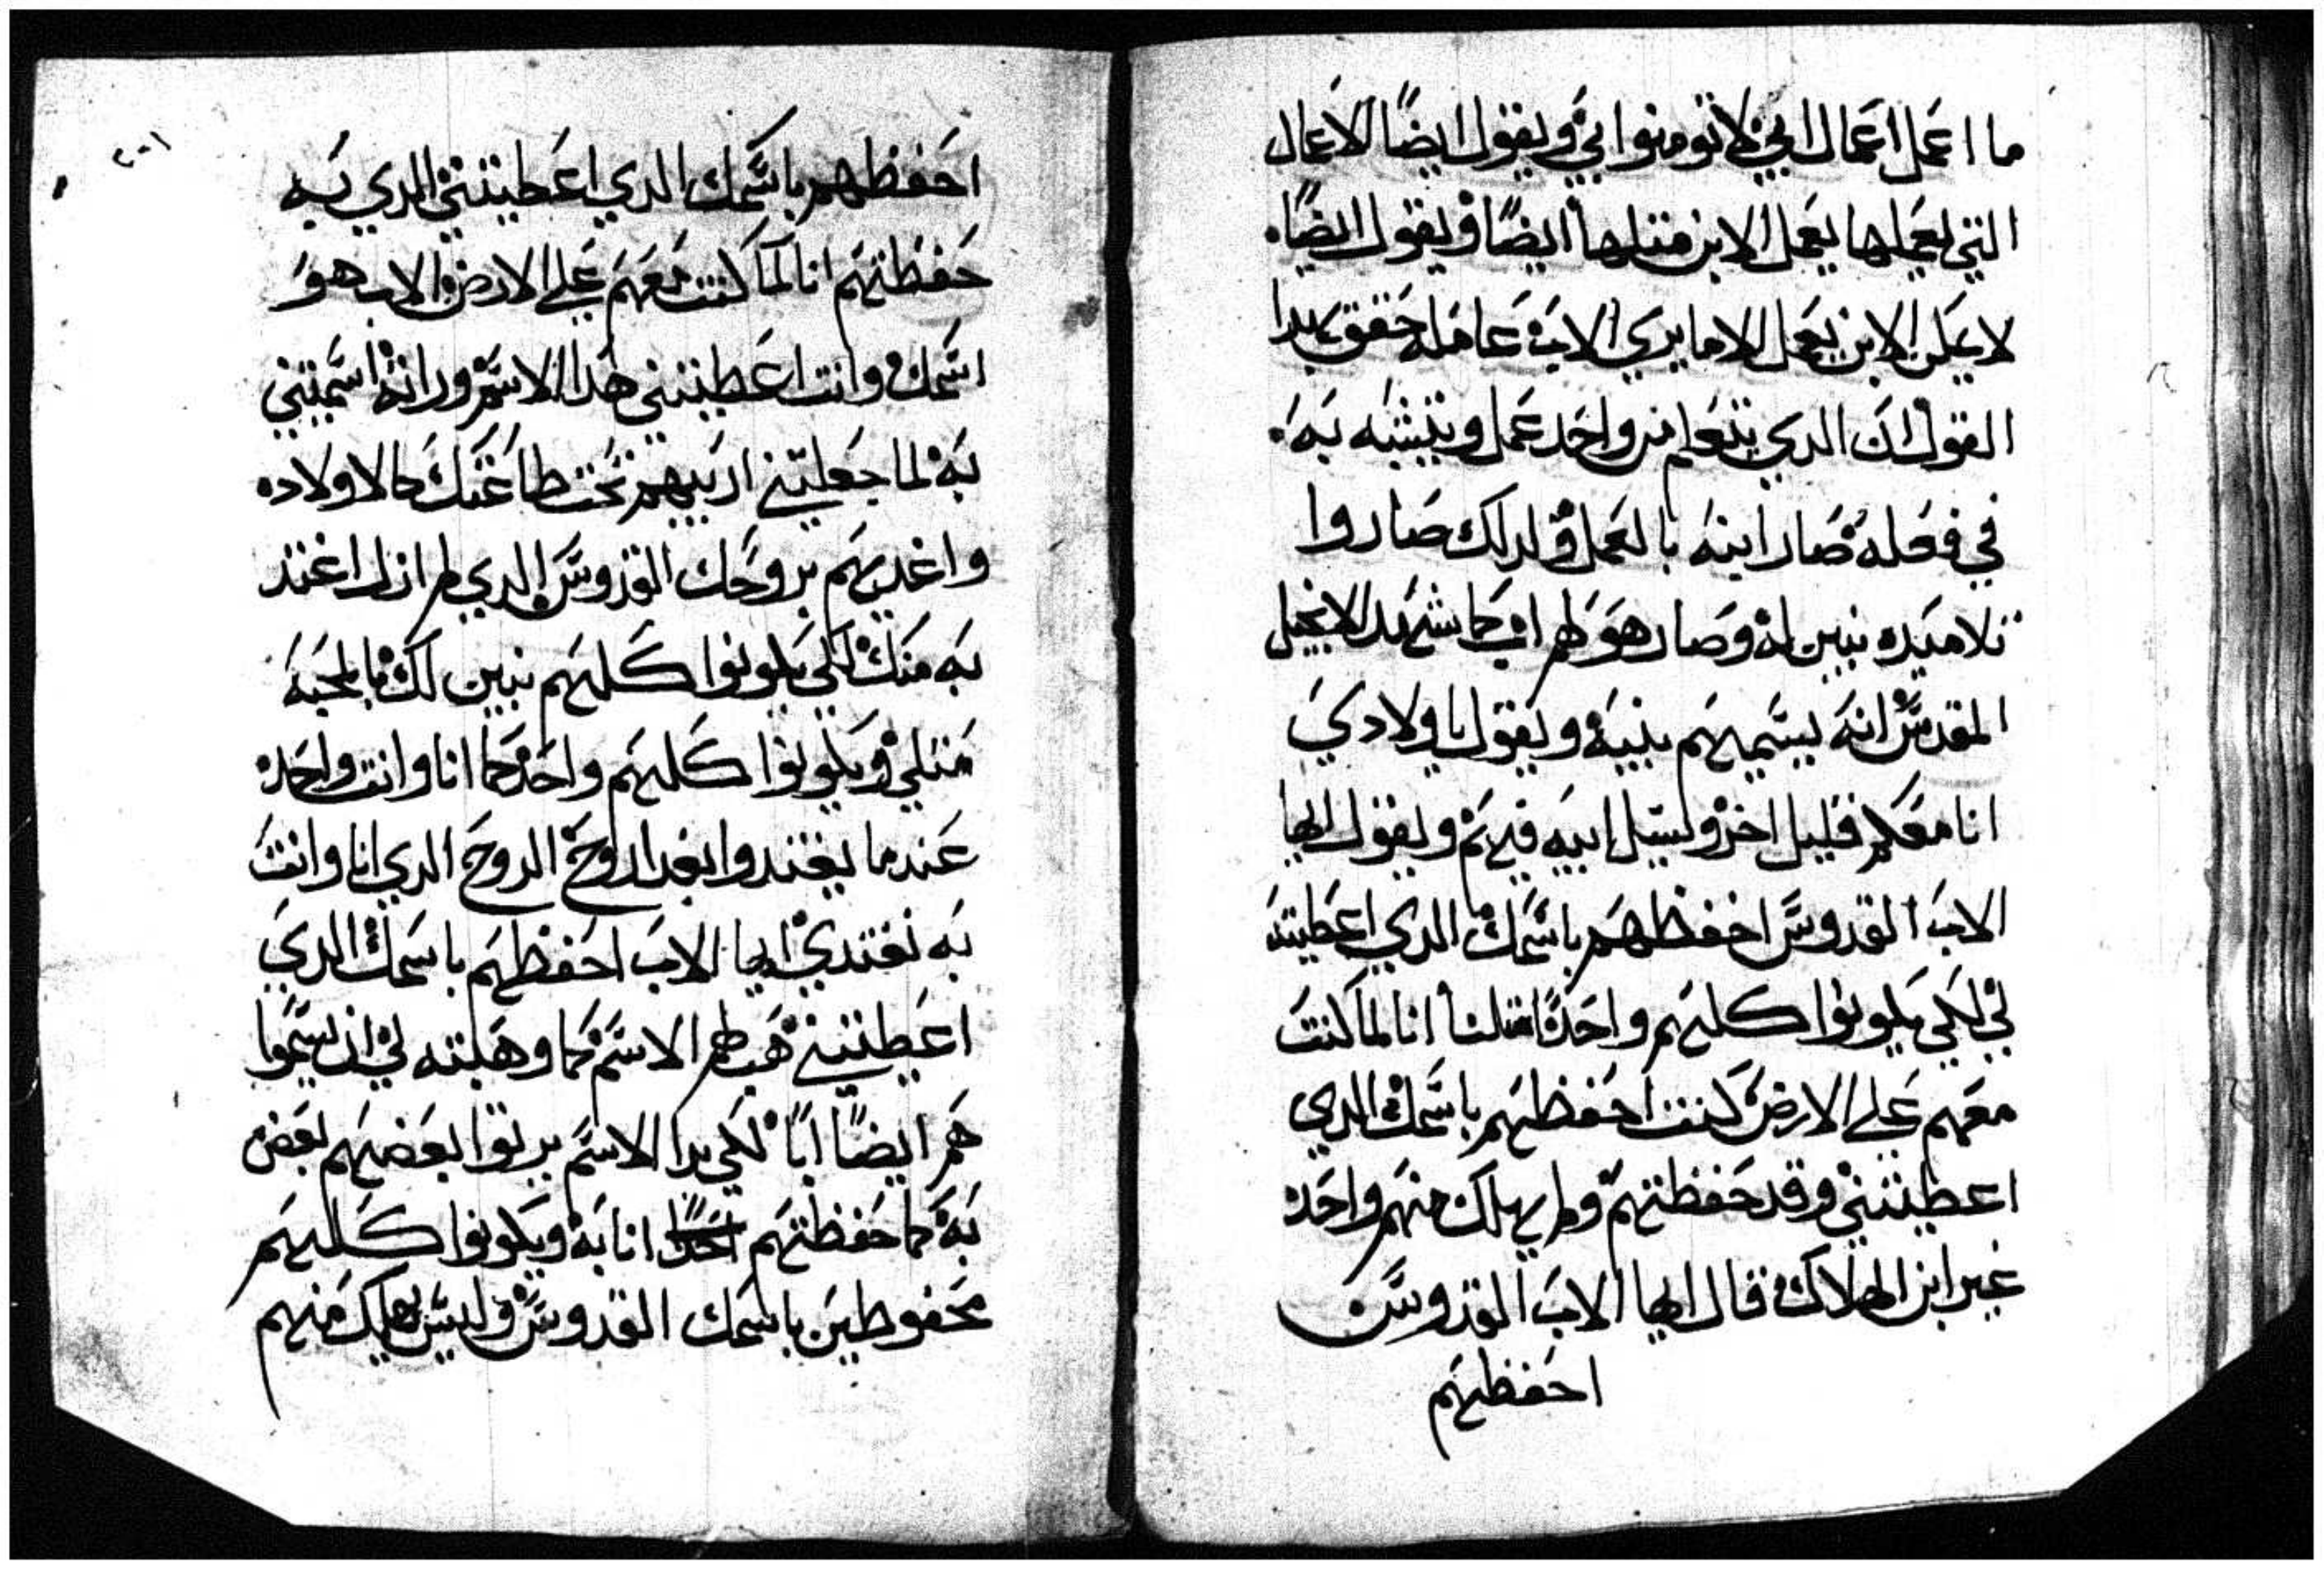 ما اعمل اعمال ابي لا تومنوا بي ويقول ايضًا الاعمال
التي يعملها يعمل الابن مثلها ايضًا ويقول ايضًا
لا يمكن الابن يعمل الا ما يري الاب عامله حقق بهدا
القول ان الدي يتعلم من واحد عمل ويتشبه به
في فعله صار ابنه بالعمل ولدلك صاروا
تلاميده بنين له وصار هو لهم اب كما شهد الانجيل
المقدس انه يسميهم بنيه ويقول يا ولادي
انا معكم قليل اخر وليتل ابيه فيهم ويقول ايها
الاب القدوس احفظهم باسمك الدي اعطيته
لي لكي يكونوا كلهم واحدًا مثلنا انا لما كنت
معهم علي الارض كنت احفظهم باسمك الدي
اعطيتني وقد حفظتهم ولم يهلك منهم واحد
غير ابن الهلاك قال ايها الاب القدوس
احفظهم
٢٠١
احفظهم باسمك الدي اعطيتني الدي به
حفظتهم انا لما كنت معهم علي الارض والاب هو
اسمك وانت اعطيتني هدا الاسم وانت اسميتني
به لما جعلتني اربيهم تحت طاعتك كالاولاد
واغديهم بروحك القدوس الدي لم ازل اغتد
به منك لكي يكونوا كلهم بنين لك بالمحبه
متلي ويكونوا كلهم واحد كما انا وانت واحد
عندما يغتدوا بغدا روح الروح الدي انا وانت
به نغتدي ايها الاب احفظهم باسمك الدي
اعطيتني هب لهم الاسم كما وهبته لي ان يسموا
هم ايضًا ابًا لكي بدا الاسم يربوا بعضهم بعض
به كما حفظتهم انا به ويكونوا كلهم
محفوظين باسمك القدوس وليس يهلك منهم